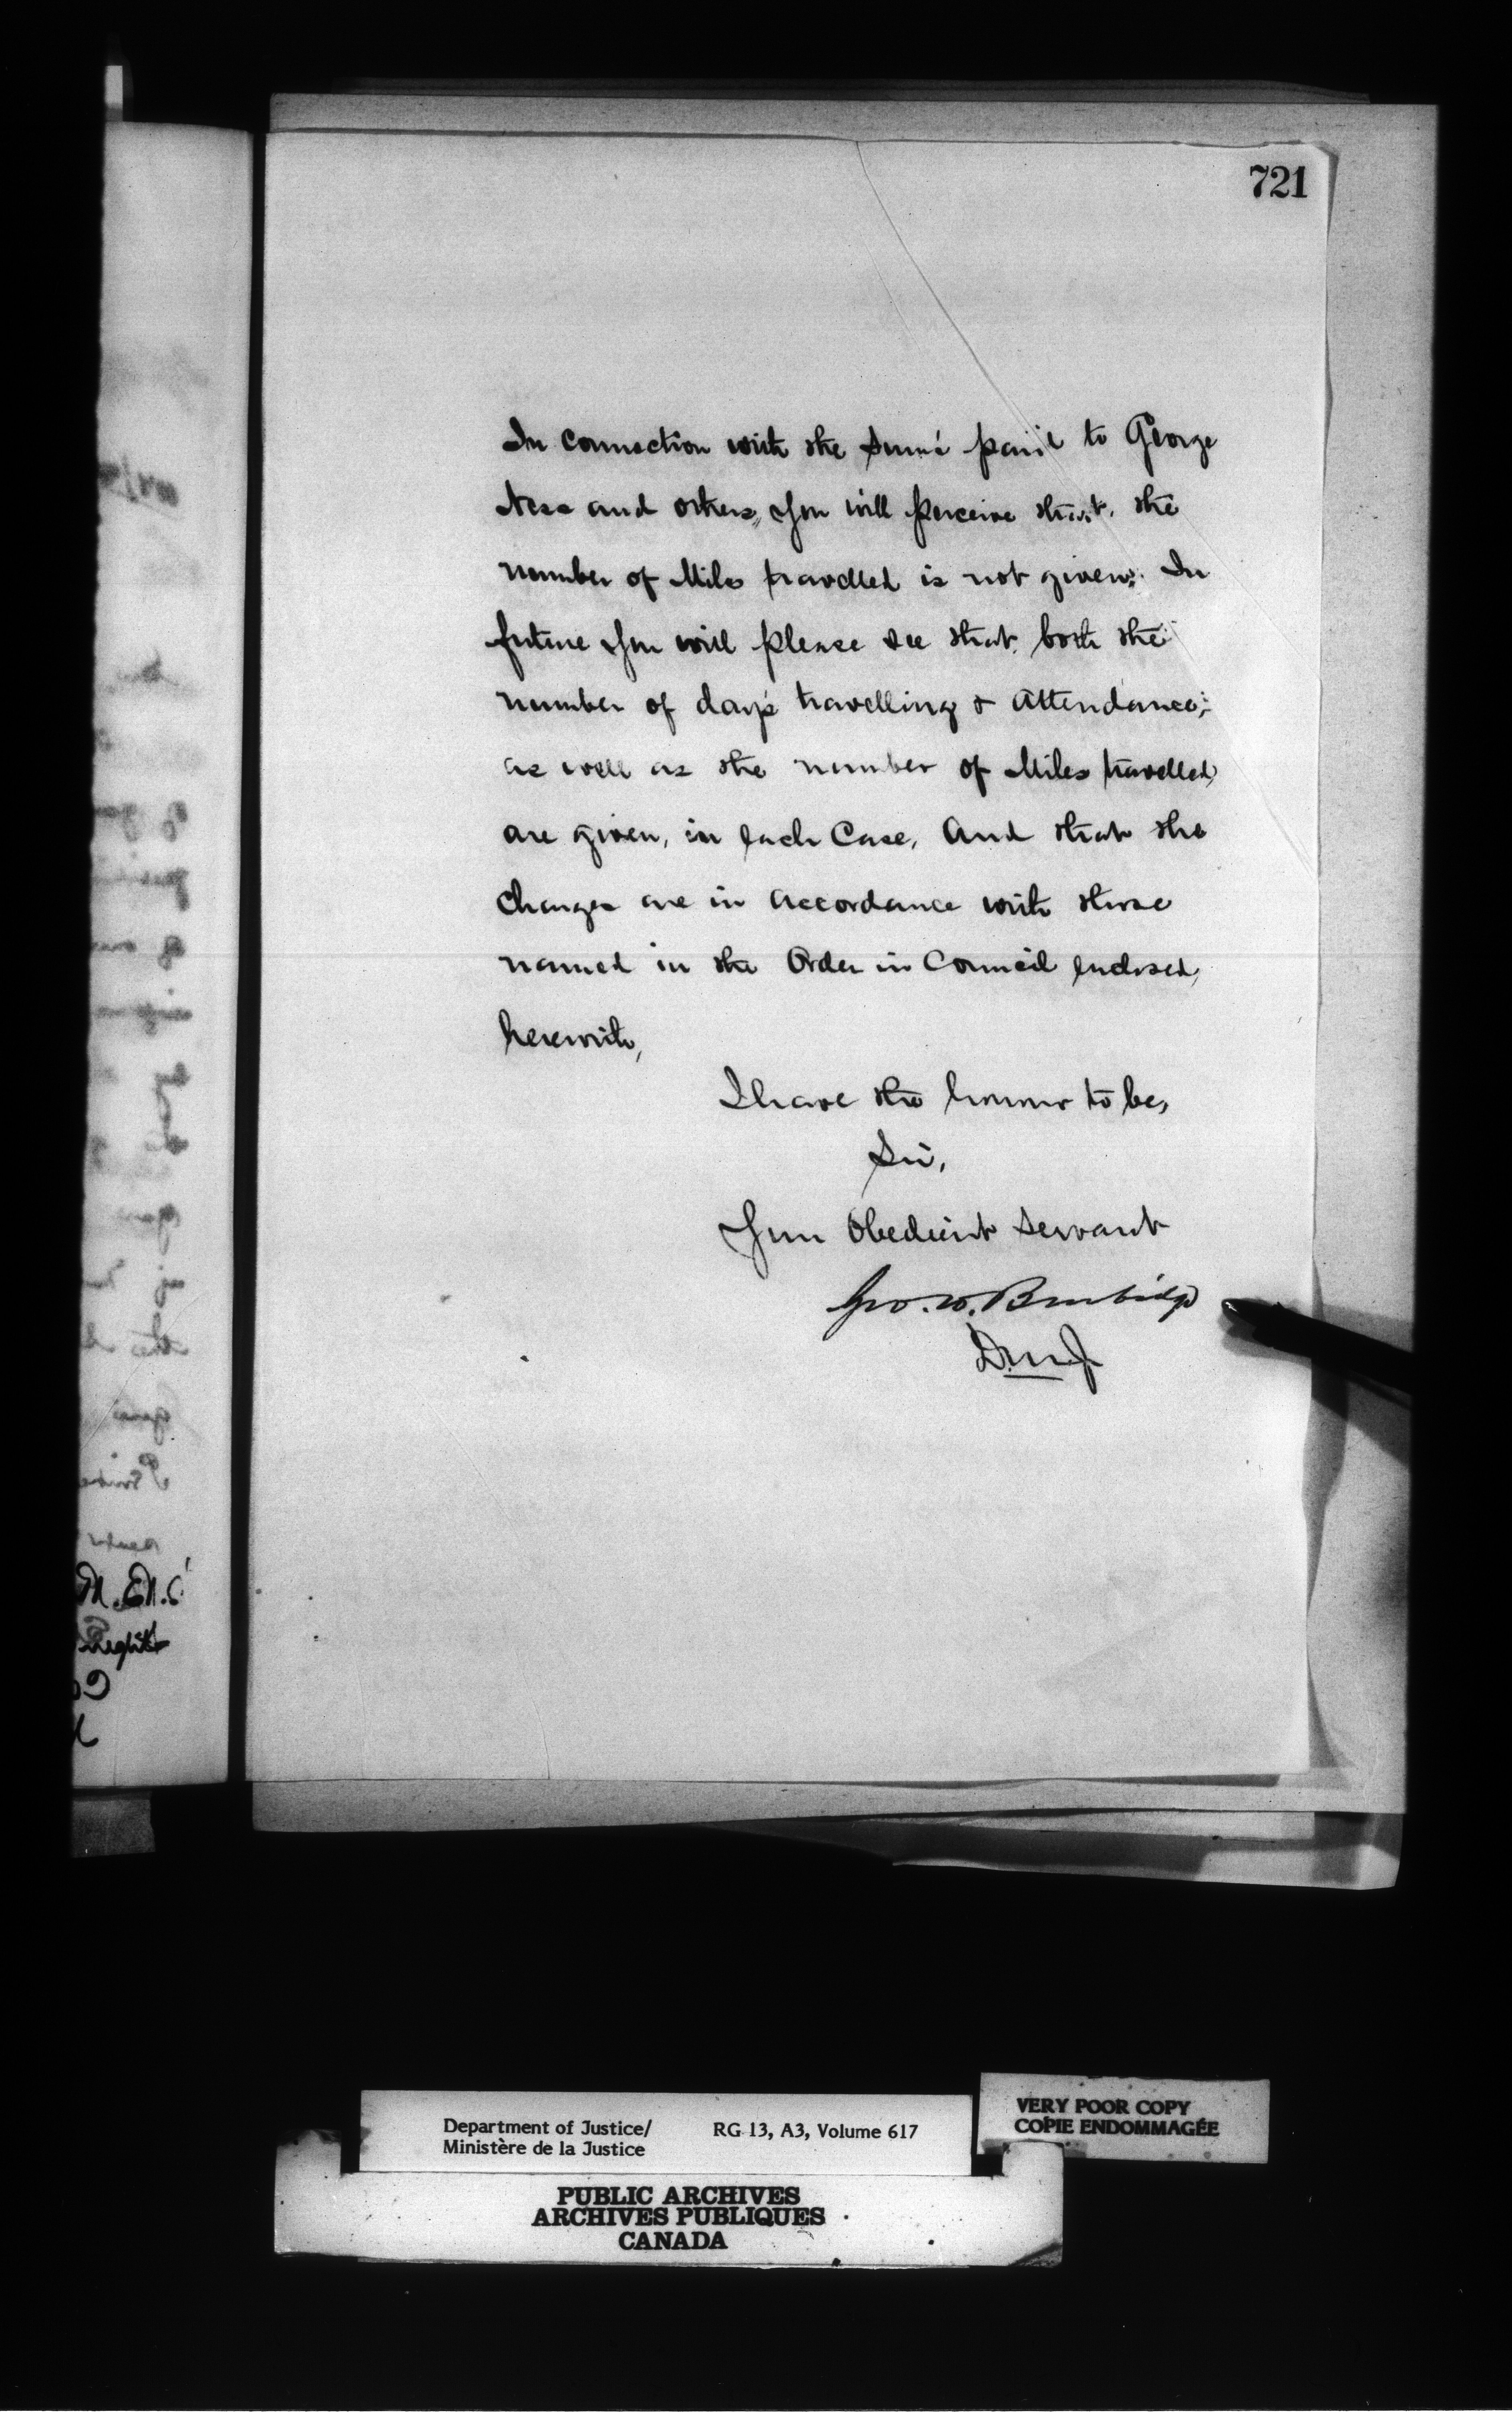 721
In Connection with the Sums paid to George
Ness and others, you will perceive that, the
number of Miles travelled is not given. In
future you will please see that both the
number of days travelling & Attendance,
as well as the number of Miles travelled,
are given, in each Case, And that the
Charges are in Accordance with those
named in the Order in Council enclosed,
herewith,
I have the honour to be,
Sir,
Your Obedient Servant
Geo. W. Burbidge
D.M.J
Department of Justice/
Ministère de la Justice
RG 13, A3, Volume 617
VERY POOR COPY
COPIE ENDOMMAGÉE
PUBLIC ARCHIVES
ARCHIVES PUBLIQUES
CANADA